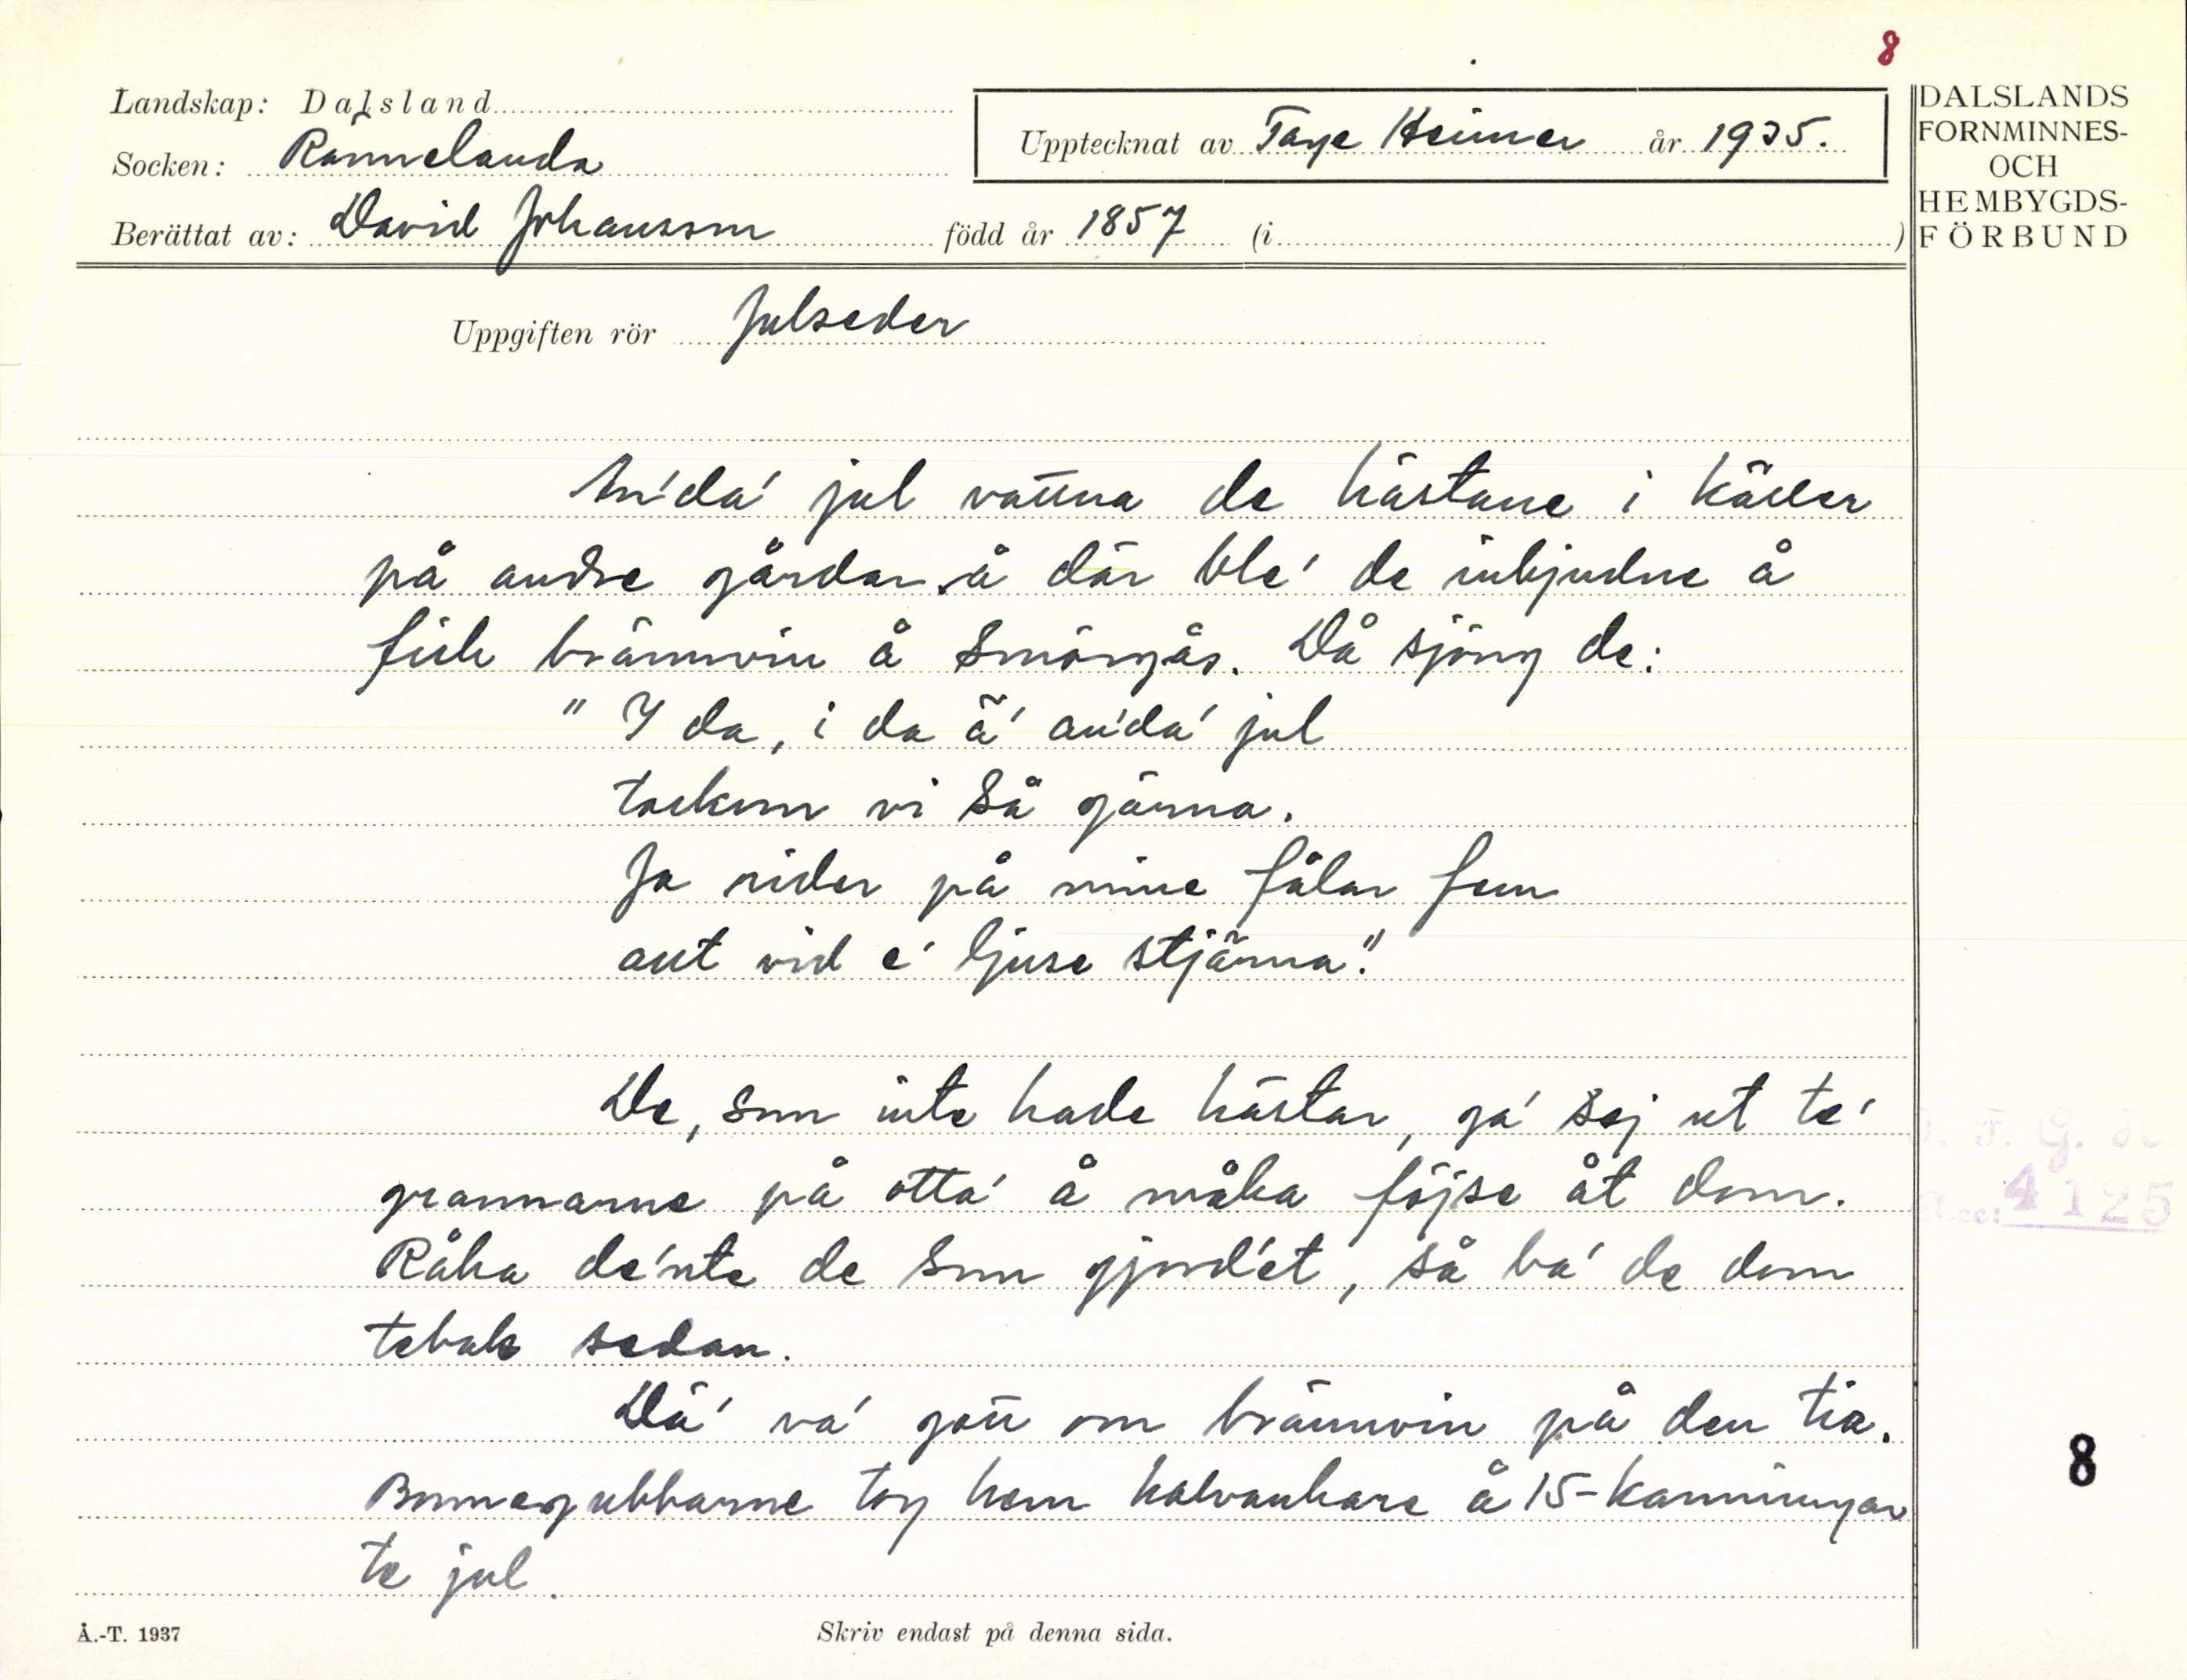 8
Landskap: Dalsland
Socken: Rännelanda
Upptecknat av Tage Heimer år 1935.
Berättat av: David Johansson född år 1857 (i )
DALSLANDS
FORNMINNES-
OCH
HEMBYGDS-
FÖRBUND
Uppgiften rör Julseder
An'da' jul vattna de hästane i käller
på andre gårdar å där ble' de inbjudne å
fick brännvin å smörgås. Då sjöng de:
" I da, i da ä' an'da' jul
tackom vi så gärna.
Ja rider på mine fålar fem
aut vid e' ljuse stjärna."
De, som inte hade hästar, ga' sej ut te'
grannarne på otta' å måka föjse åt dom.
Råka de'nte de som gjord'et, så ba' de dom
tebaks sedan.
Dä' va' gott om brännvin på den tia.
Bonnegubbarne tog hem halvankare å 15-kanningar
te jul.
J. F. G. H.
Acc: 4125
8
Å.-T. 1937
Skriv endast på denna sida.